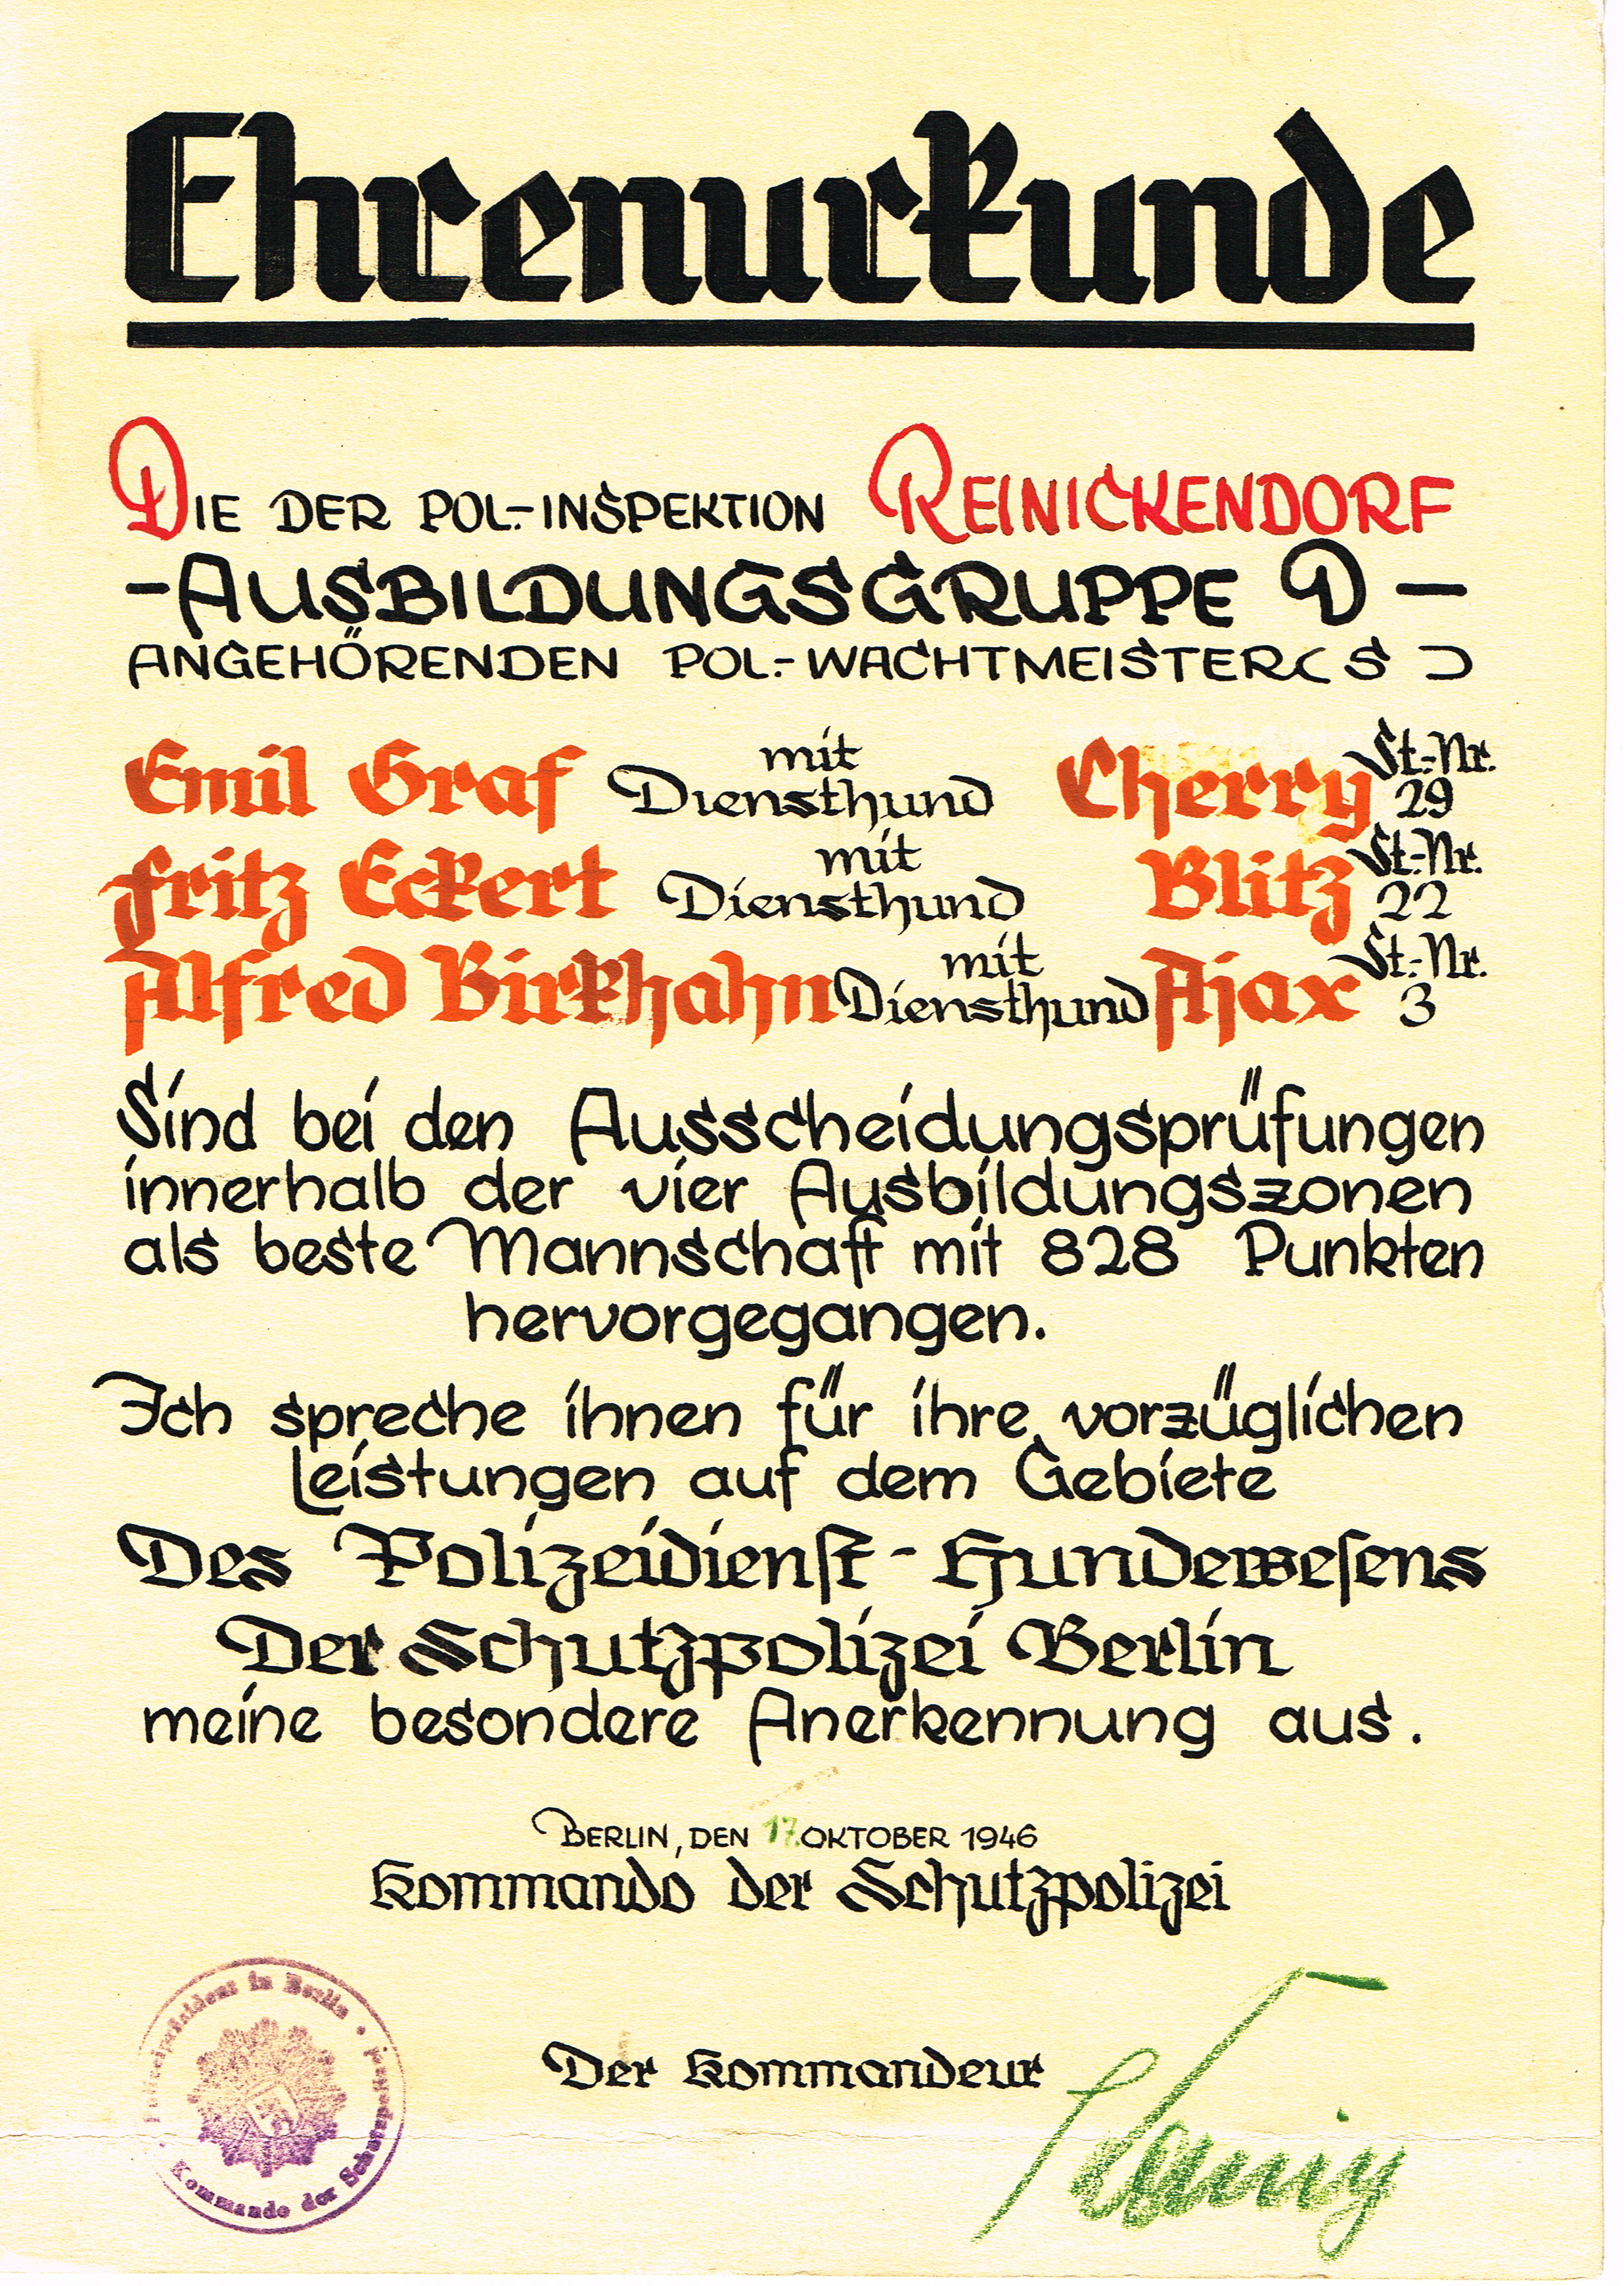 Ehrenurkunde
DIE DER POL.-INSPEKTION REINICKENDORF
-AUSBILDUNGSGRUPPE D-
ANGEHÖRENDEN POL.-WACHTMEISTER(S)
Emil Graf mit Diensthund Cherry St.-Nr. 29
Fritz Eckert mit Diensthund Blitz St.-Nr. 22
Alfred Birkhahn mit Diensthund Ajax St.-Nr. 3
Sind bei den Ausscheidungsprüfungen
innerhalb der vier Ausbildungszonen
als beste Mannschaft mit 828 Punkten
hervorgegangen.
Ich spreche ihnen für ihre vorzüglichen
Leistungen auf dem Gebiete
Des Polizeidienſt-Hundeweſens
Der Schutzpolizei Berlin
meine besondere Anerkennung aus.
BERLIN, DEN 17. OKTOBER 1946
Kommando der Schutzpolizei
Polizeipräsident in Berlin •
Kommando der Schutzpolizei
Der Kommandeur